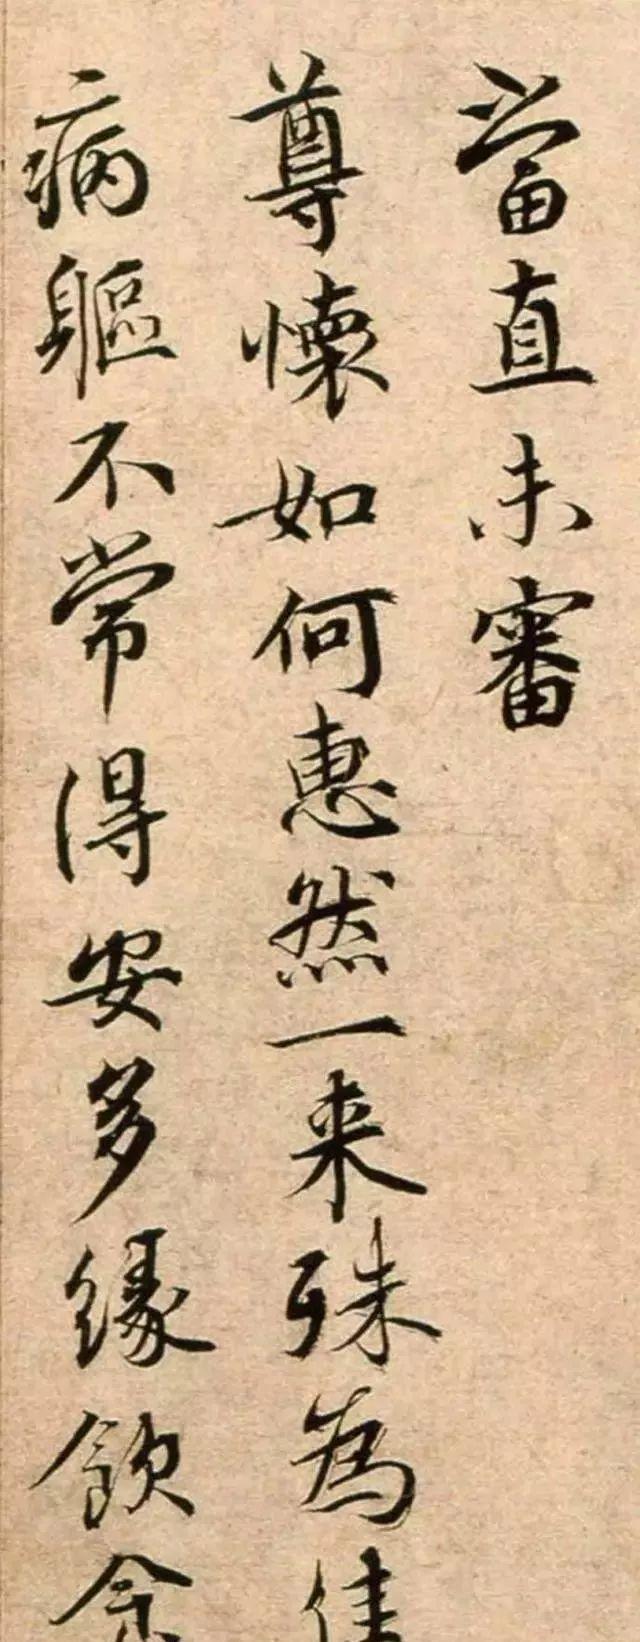 當直未審
尊懷如何惠然一来殊為佳
病軀不常得安多緣飲食